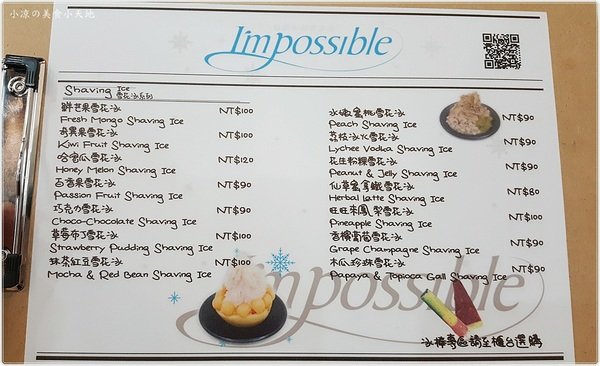 小凉の美食小天地
I'mpossible
Shaving Ice
雪花冰系列
鮮芒果雪花冰 NT$100
Fresh Mango Shaving Ice
奇異果雪花冰 NT$100
Kiwi Fruit Shaving Ice
哈蜜瓜雪花冰 NT$120
Honey Melon Shaving Ice
百香果雪花冰 NT$90
Passion Fruit Shaving Ice
巧克力雪花冰 NT$90
Choco-Chocolate Shaving Ice
草莓布丁雪花冰 NT$100
Strawberry Pudding Shaving Ice
抹茶紅豆雪花冰 NT$100
Mocha & Red Bean Shaving Ice
水嫩蜜桃雪花冰 NT$90
Peach Shaving Ice
荔枝冰火雪花冰 NT$90
Lychee Vodka Shaving Ice
花生粉粿雪花冰 NT$90
Peanut & Jelly Shaving Ice
仙草蜜拿鐵雪花冰 NT$80
Herbal Latte Shaving Ice
旺旺來鳳梨雪花冰 NT$100
Pineapple Shaving Ice
香檳葡萄雪花冰 NT$90
Grape Champagne Shaving Ice
木瓜珍珠雪花冰 NT$90
Papaya & Tapioca Gall Shaving Ice
Impossible
冰棒專區請至櫃台選購